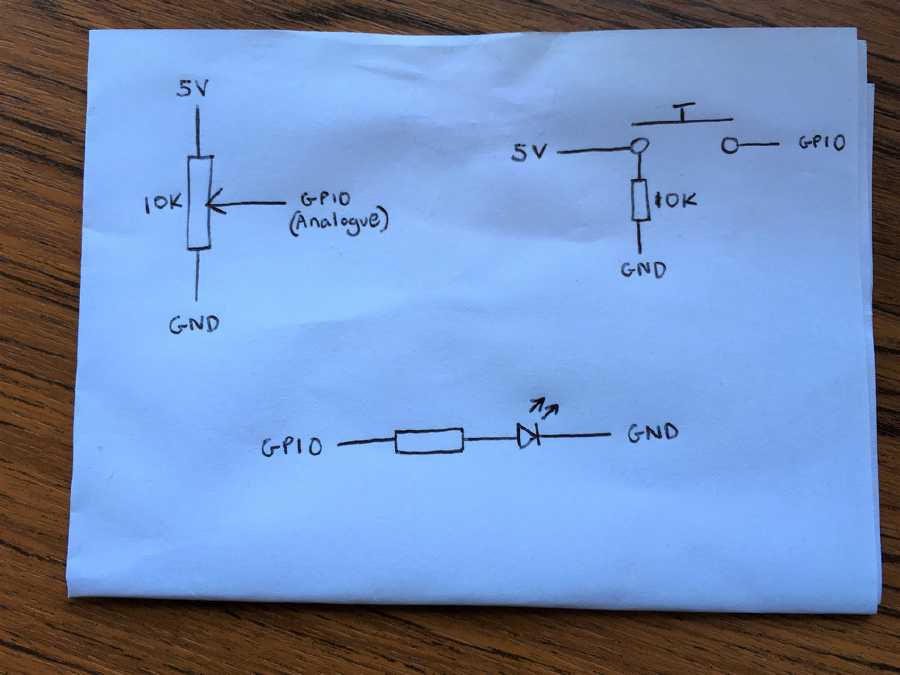 5V
10K
GPIO
(Analogue)
GND
5V
GPIO
10K
GND
GPIO
GND